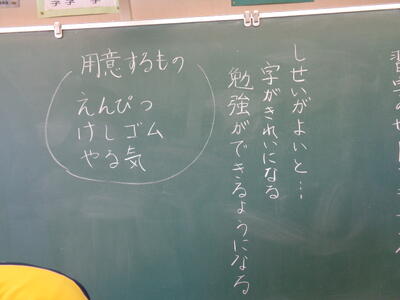 しせいがよいと…
字がきれいになる
勉強ができるようになる
用意するもの
えんぴつ
けしゴム
やる気